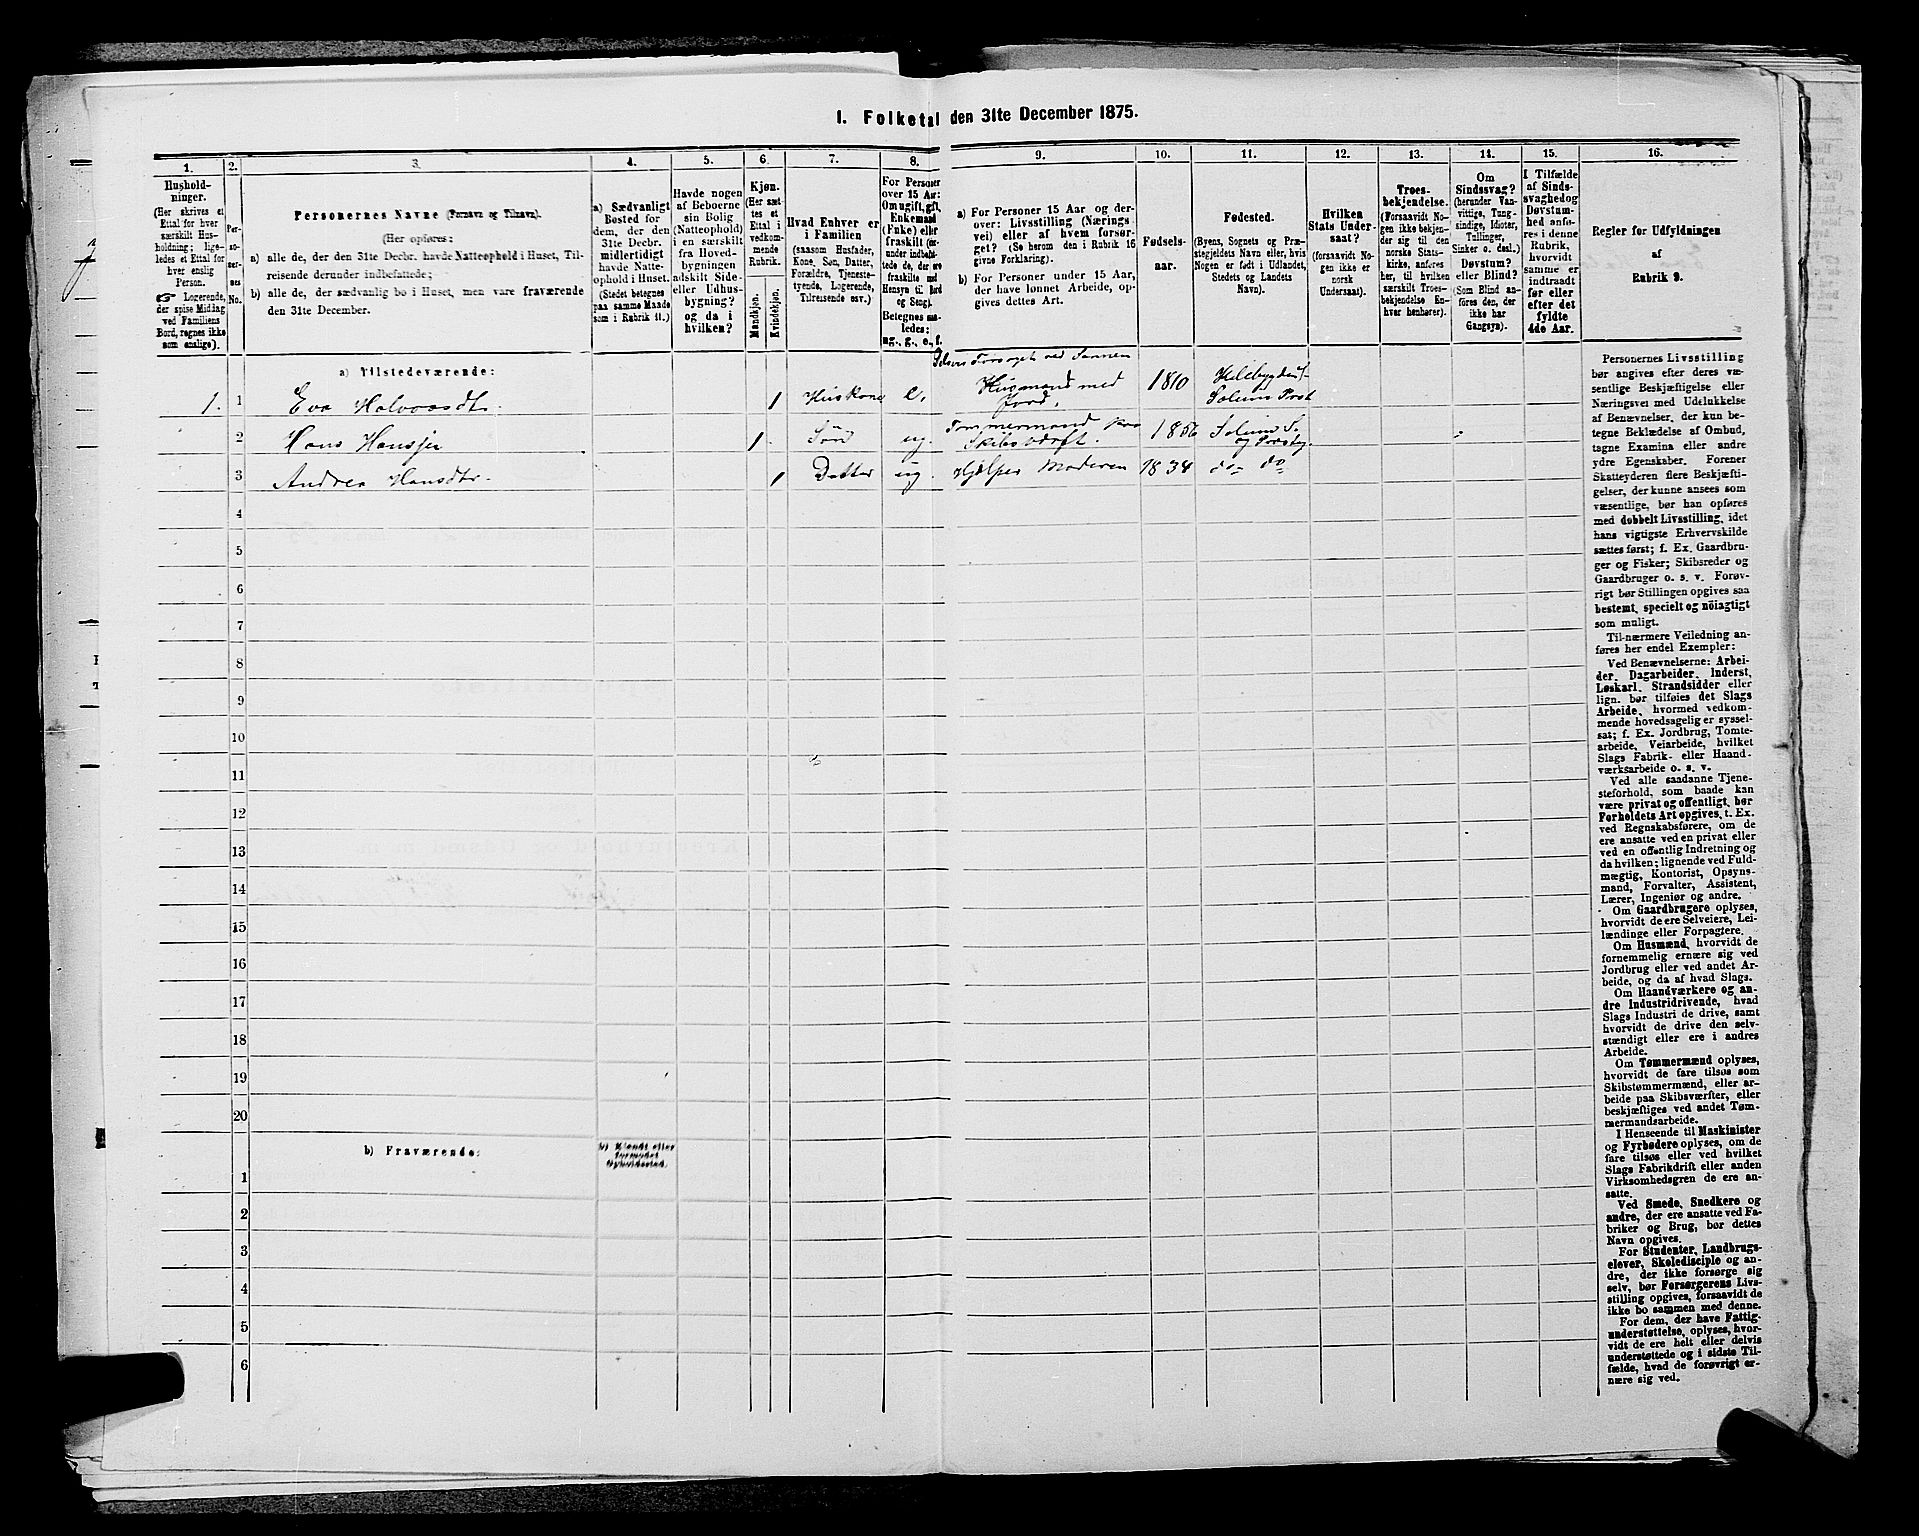 1. Folketal den 31te December 1875.
1.
2.
3.
4.
5.
6.
7.
8.
9.
10.
11.
12.
13.
14.
15.
16.
Hushold-
ninger.
(Her skrives et
Ettal for hver
særskilt Hus-
holdning; lige-
ledes et Ettal for
hver enslig
Person.
☞ Logerende,
der spise Middag
ved Familiens
Bord, regnes ikke
som enslige).
Per-
so-
ner-
nes
No.
Personernes Navne (Fornavn og Tilnavn).
(Her opføres:
a) alle de, der den 31te Decbr. havde Natteophold i Huset, Til-
reisende derunder indbefattede;
b) alle de, der sædvanlig bo i Huset, men vare fraværende
den 31te December.
a) Sædvanligt
Bosted for
dem, der den
31te Decbr.
midlertidigt
havde Natte-
ophold i Huset.
(Stedet betegnes
paa samme Maade
som i Rubrik 11.)
Havde nogen
af Beboerne
sin Bolig
(Natteophold)
i en særskilt
fra Hoved-
bygningen
adskilt Side-
eller Udhus-
bygning?
og da i
hvilken?
Kjøn.
(Her sæt-
tes et
Ettal i
vedkom-
mende
Rubrik.
Mandkjøn.
Kvindekjøn.
Hvad Enhver er
i Familien
(saasom Husfader,
Kone, Søn, Datter,
Forældre, Tjeneste-
tyende, Logerende,
Tilreisende osv.)
For Personer
over 15 Aar:
Om ugift, gift,
Enkemand
(Enke) eller
fraskilt (der-
under indbefat-
tede de, der ere
fraskilte med
Hensyn til Bord
og Seng).
Betegnes saa-
ledes:
ug., g., e., f.
a) For Personer 15 Aar og der-
over: Livsstilling (Nærings-
vei) eller af hvem forsør-
get? (Se herom den i Rubrik 16
givne Forklaring).
b) For Personer under 15 Aar,
der have lønnet Arbeide, op-
gives dettes Art.
Fødsels-
aar.
Fødested.
(Byens, Sognets og Præ-
stegjeldets Navn eller, hvis
Nogen er født i Udlandet,
Stedets og Landets
Navn).
Hvilken
Stats Under-
saat?
(forsaavidt No-
gen ikke er
norsk
Undersaat).
Troes-
bekjendelse.
(Forsaavidt No-
gen ikke bekjen-
der sig til den
norske Stats-
kirke, anføres
her, til hvilken
særskilt Troes-
bekjendelse En-
hver henhører).
Om
Sindssvag?
(herunder Van-
vittige, Tung-
sindige, Idioter,
Tullinger,
Sinker o. desl.)
Døvstum?
eller Blind?
(Som Blind an-
føres den, der
ikke har
Gangsyn).
I Tilfælde
af Sinds-
svaghed og
Døvstum-
hed anfø-
res i denne
Rubrik,
hvorvidt
samme er
indtraadt
før eller
efter det
fyldte
4de Aar.
Regler for Udfyldningen
af
Rubrik 9.
a) Tilstedeværende:
1. 1 Eva Halvorsdtr. 1 Huskone e. Husmand med Jord. 1810
Solum Præst
2 Hans Hanssen 1. Søn ug. Tømmermand paa Skibsværft. 1856 Solum S. og Præstgj.
3 Andrea Hansdtr. 1 Datter ug. Hjælper Moderen 1834 do do
4
5
6
7
8
9
10
11
12
13
14
15
16
17
18
19
20
b) Fraværende:
b) Kjendt eller
formodet
Opholdssted.
1
2
3
4
5
6
Personernes Livsstilling
bør angives efter deres væ-
sentlige Beskjæftigelse eller
Næringsvei med Udelukkelse
af Benævnelser, der kun be-
tegne Beklædelse af Ombud,
tagne Examina eller andre
ydre Egenskaber. Forener
Skatteyderen flere Beskjæfti-
gelser, der kunne ansees som
væsentlige, bør han opføres
med dobbelt Livsstilling, idet
hans vigtigste Erhvervskilde
sættes først; f. Ex. Gaardbru-
ger og Fisker; Skibsreder og
Gaardbruger o. s. v. Forøv-
rigt bør Stillingen opgives saa
bestemt, specielt og nöiagtigt
som muligt.
Til nærmere Veiledning an-
føres her endel Exempler:
Ved Benævnelserne: Arbei-
der, Dagarbeider, Inderst,
Løskarl, Strandsidder eller
lign. bør tilføies det Slags
Arbeide, hvormed vedkom-
mende hovedsagelig er syssel-
sat; f. Ex. Jordbrug, Tomte-
arbeide, Veiarbeide, hvilket
Slags Fabrik- eller Haand-
værksarbeide o. s. v.
Ved alle saadanne Tjene-
steforhold, som baade kan
være privat og offentligt, bør
Forholdets Art opgives, t. Ex.
ved Regnskabsførere, om de
ere ansatte ved en privat eller
ved en offentlig Indretning og
da hvilken; lignende ved Fuld-
mægtig, Kontorist, Opsyns-
mand, Forvalter, Assistent,
Lærer, Ingeniør og andre.
Om Gaardbrugere oplyses,
hvorvidt de ere Selveiere, Lei-
lændinge eller Forpagtere.
Om Husmænd, hvorvidt de
fornemmelig ernære sig ved
Jordbrug eller ved andet Ar-
beide, og da af hvad Slags.
Om Haandværkere og an-
dre Industridrivende, hvad
Slags Industri de drive, samt
hvorvidt de drive den selv-
stændigt eller ere i andres
Arbeide.
Om Tømmermænd oplyses,
hvorvidt de fare tilsøs som
Skibstømmermænd, eller ar-
beide paa Skibsværfter, eller
beskjæftiges ved andet Tøm-
mermandsarbeide.
I Henseende til Maskinister
og Fyrbødere oplyses, om de
fare tilsøs eller ved hvilket
Slags Fabrikdrift eller anden
Virksomhedsgren de ere an-
satte.
Ved Smede, Snedkere og
andre, der ere ansatte ved Fa-
briker og Brug, bør dettes
Navn opgives.
For Studenter, Landbrugs-
elever, Skoledisciple og an-
dre, der ikke forsørge sig
selv, bør Forsørgerens Livs-
stilling opgives, forsaavidt de
ikke bo sammen med denne.
For dem, der have Fattig-
understøttelse, oplyses, hvor-
vidt de ere helt eller delvis
understøttede og i sidste Til-
fælde, hvad de forøvrigt er-
nære sig ved.